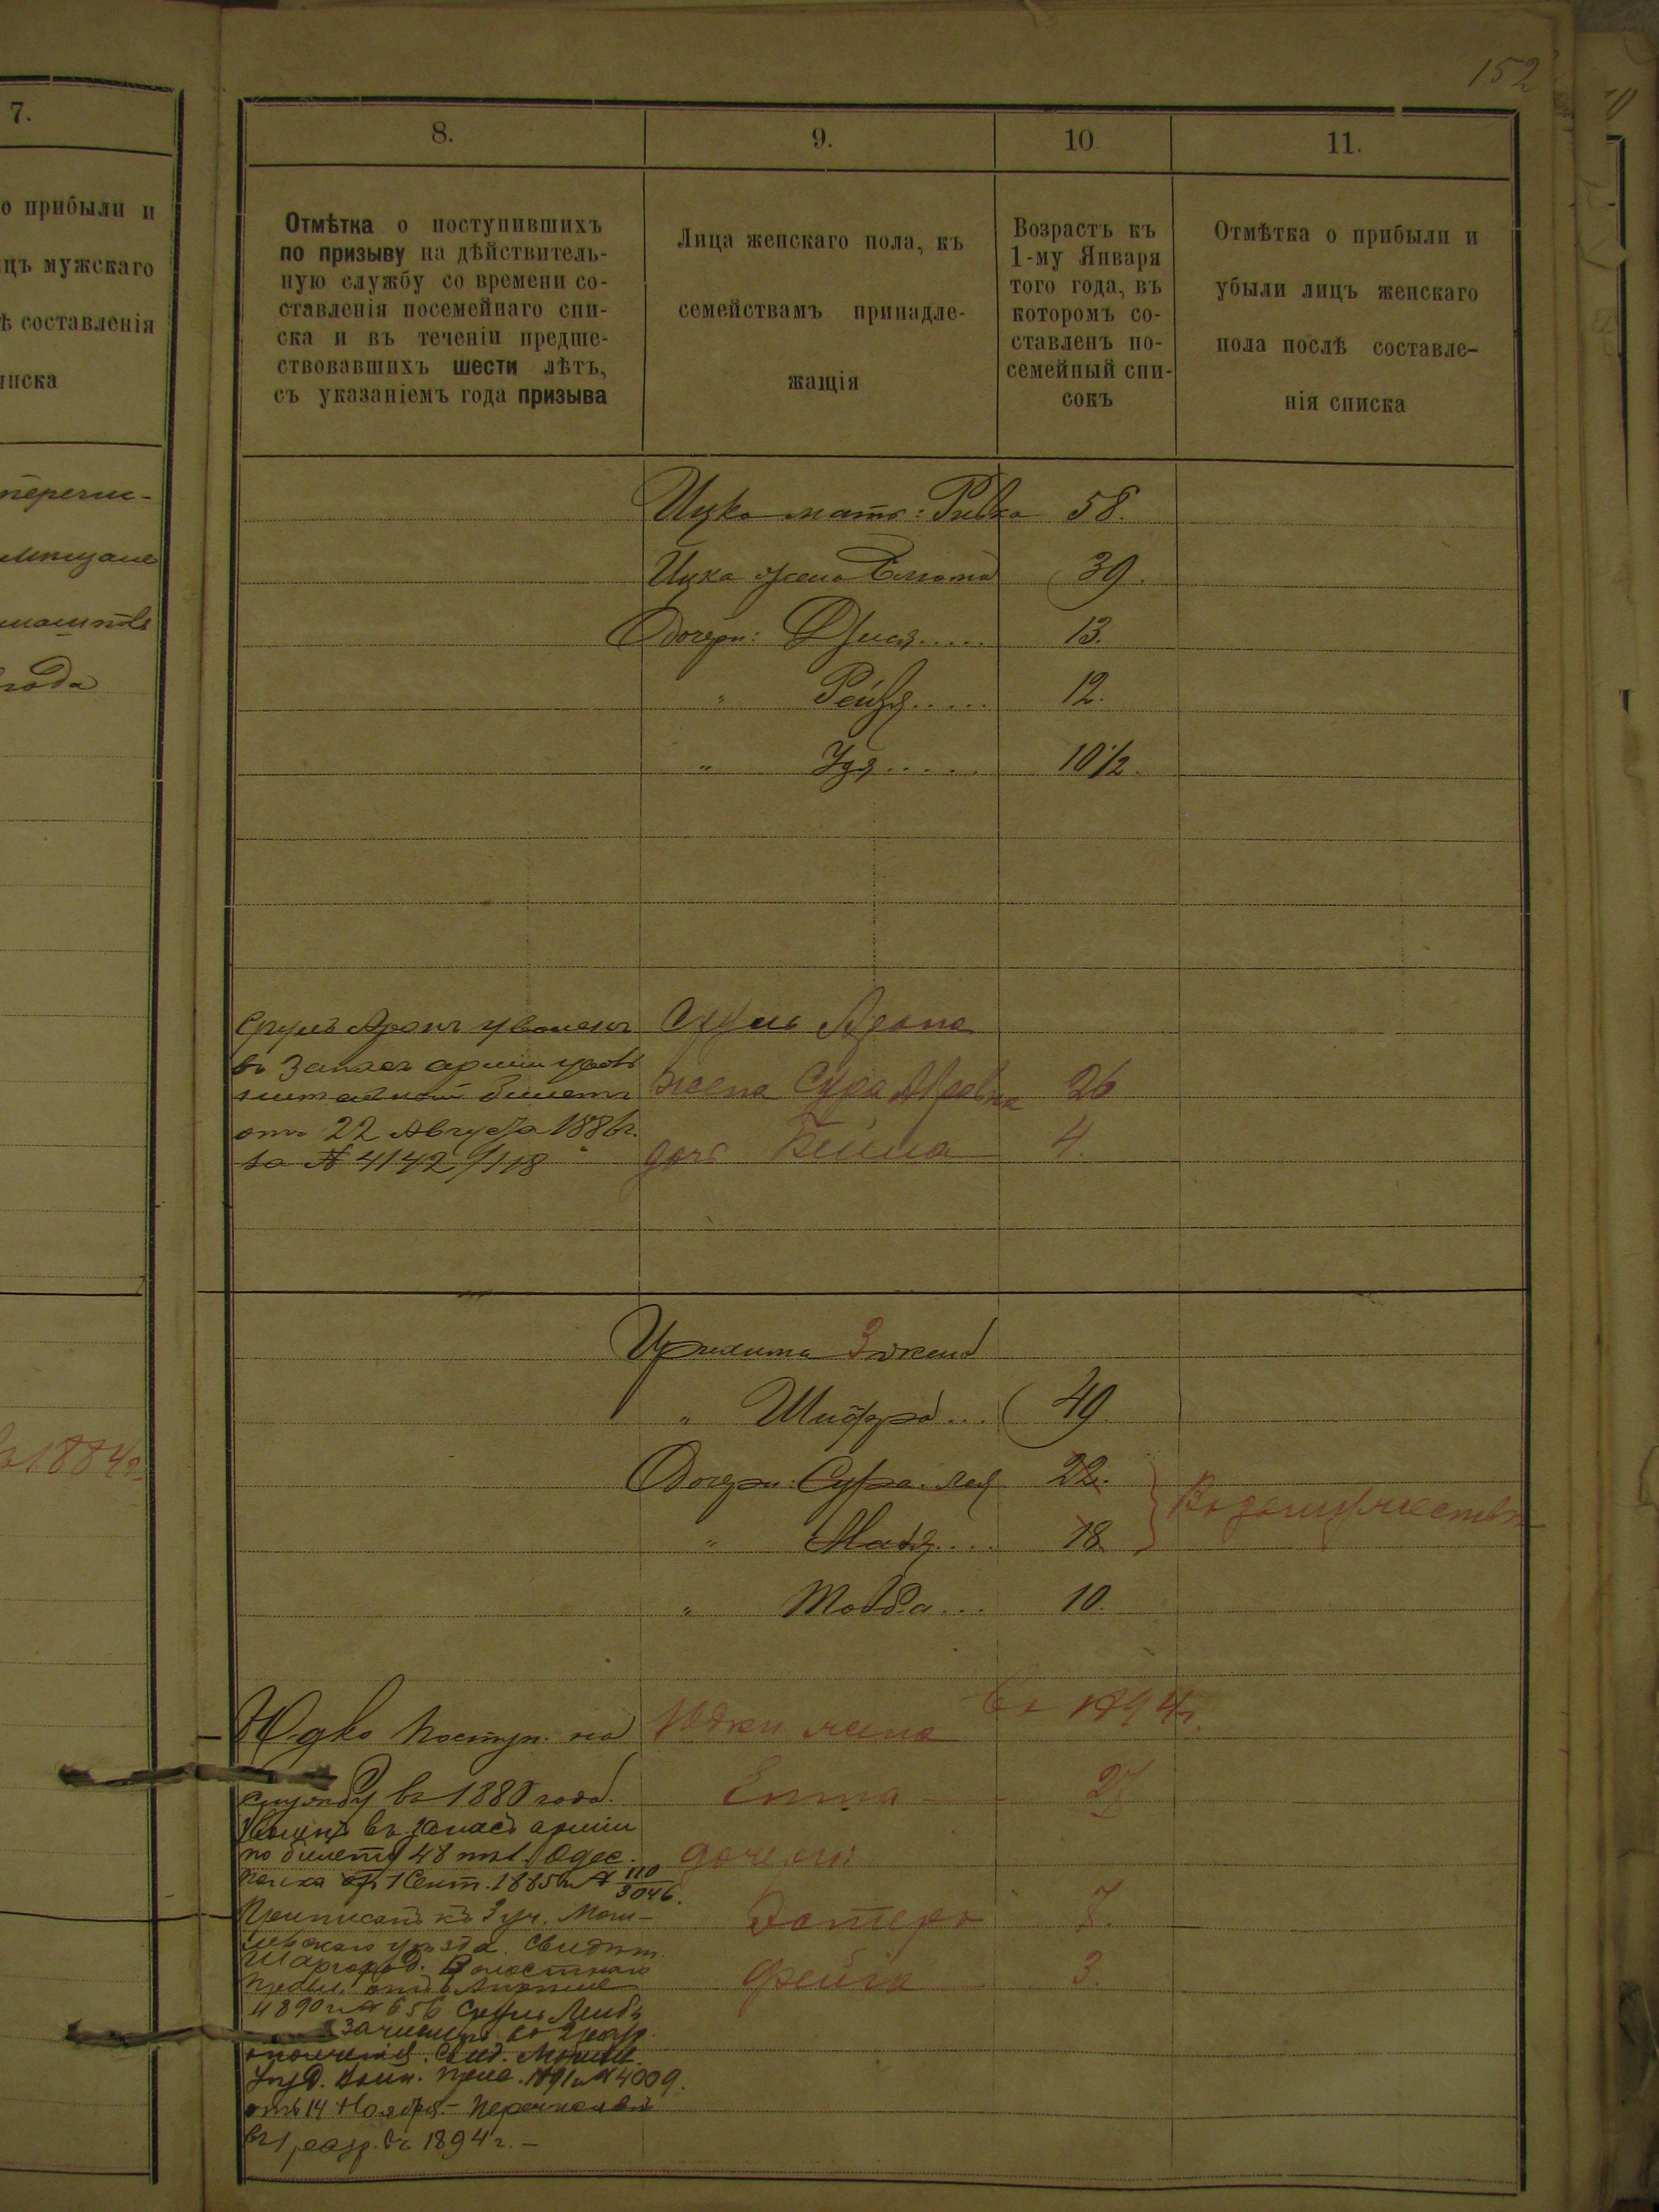 152
7.
о прибыли и
цъ мужскаго
ѣ составленія
писка
перечис-
мѣщане
года
1884г.
8.
9.
10
11.
Отмѣтка о поступившихъ
по призыву на дѣйствитель-
ную службу со времени со-
ставленія посемейнаго спи-
ска и въ теченіи предше-
ствовавшихъ шести лѣтъ,
съ указаніемъ года призыва
Лица женскаго пола, къ
семействамъ принадле-
жащія
Возрастъ къ
1-му Января
того года, въ
которомъ со-
ставленъ по-
семейный спи-
сокъ
Отмѣтка о прибыли и
убыли лицъ женскаго
пола послѣ составле-
нія списка
Ицка мать: Ривка 58.
Ицка жена 39.
Дочери: 13.
" Рейзя..... 12.
" Удя..... 10 1/2.
Сруль Аронъ уволенъ
въ Запасъ арміи
билетъ
отъ 22 Августа 1886г.
за № 4142/118
Сруль Арона
жена Сура 26
дочь Бейла 4.
жена
" Шифра... 49
Дочери: Сура Лея 22.
" Мотя... 18
Въ замужествѣ
" Товба... 10.
Юдко поступ. на
службу въ 1880 года.
въ запасъ арміи
по билету 48 пѣх. Одес.
полка отъ 1 Сент. 1885г. № 110/3046.
Приписанъ къ 3 уч. Моги-
левскаго уѣзда. Свидѣт.
Шаргород. Волостнаго
Правл. отъ 6 Апрѣля
1890г. № 656 Сруль Лейбъ
зачисленъ во 2 разр.
ополченія. Свид. Могилев.
Уѣзд. Воин. Прис. 1891г. № 4009.
отъ 14 Ноября.- Перечисленъ
въ 1 разр. въ 1894 г.-
Юдки жена
въ 1894г.
Ента 27
дочери
Эстеръ 7.
Фейга 3.